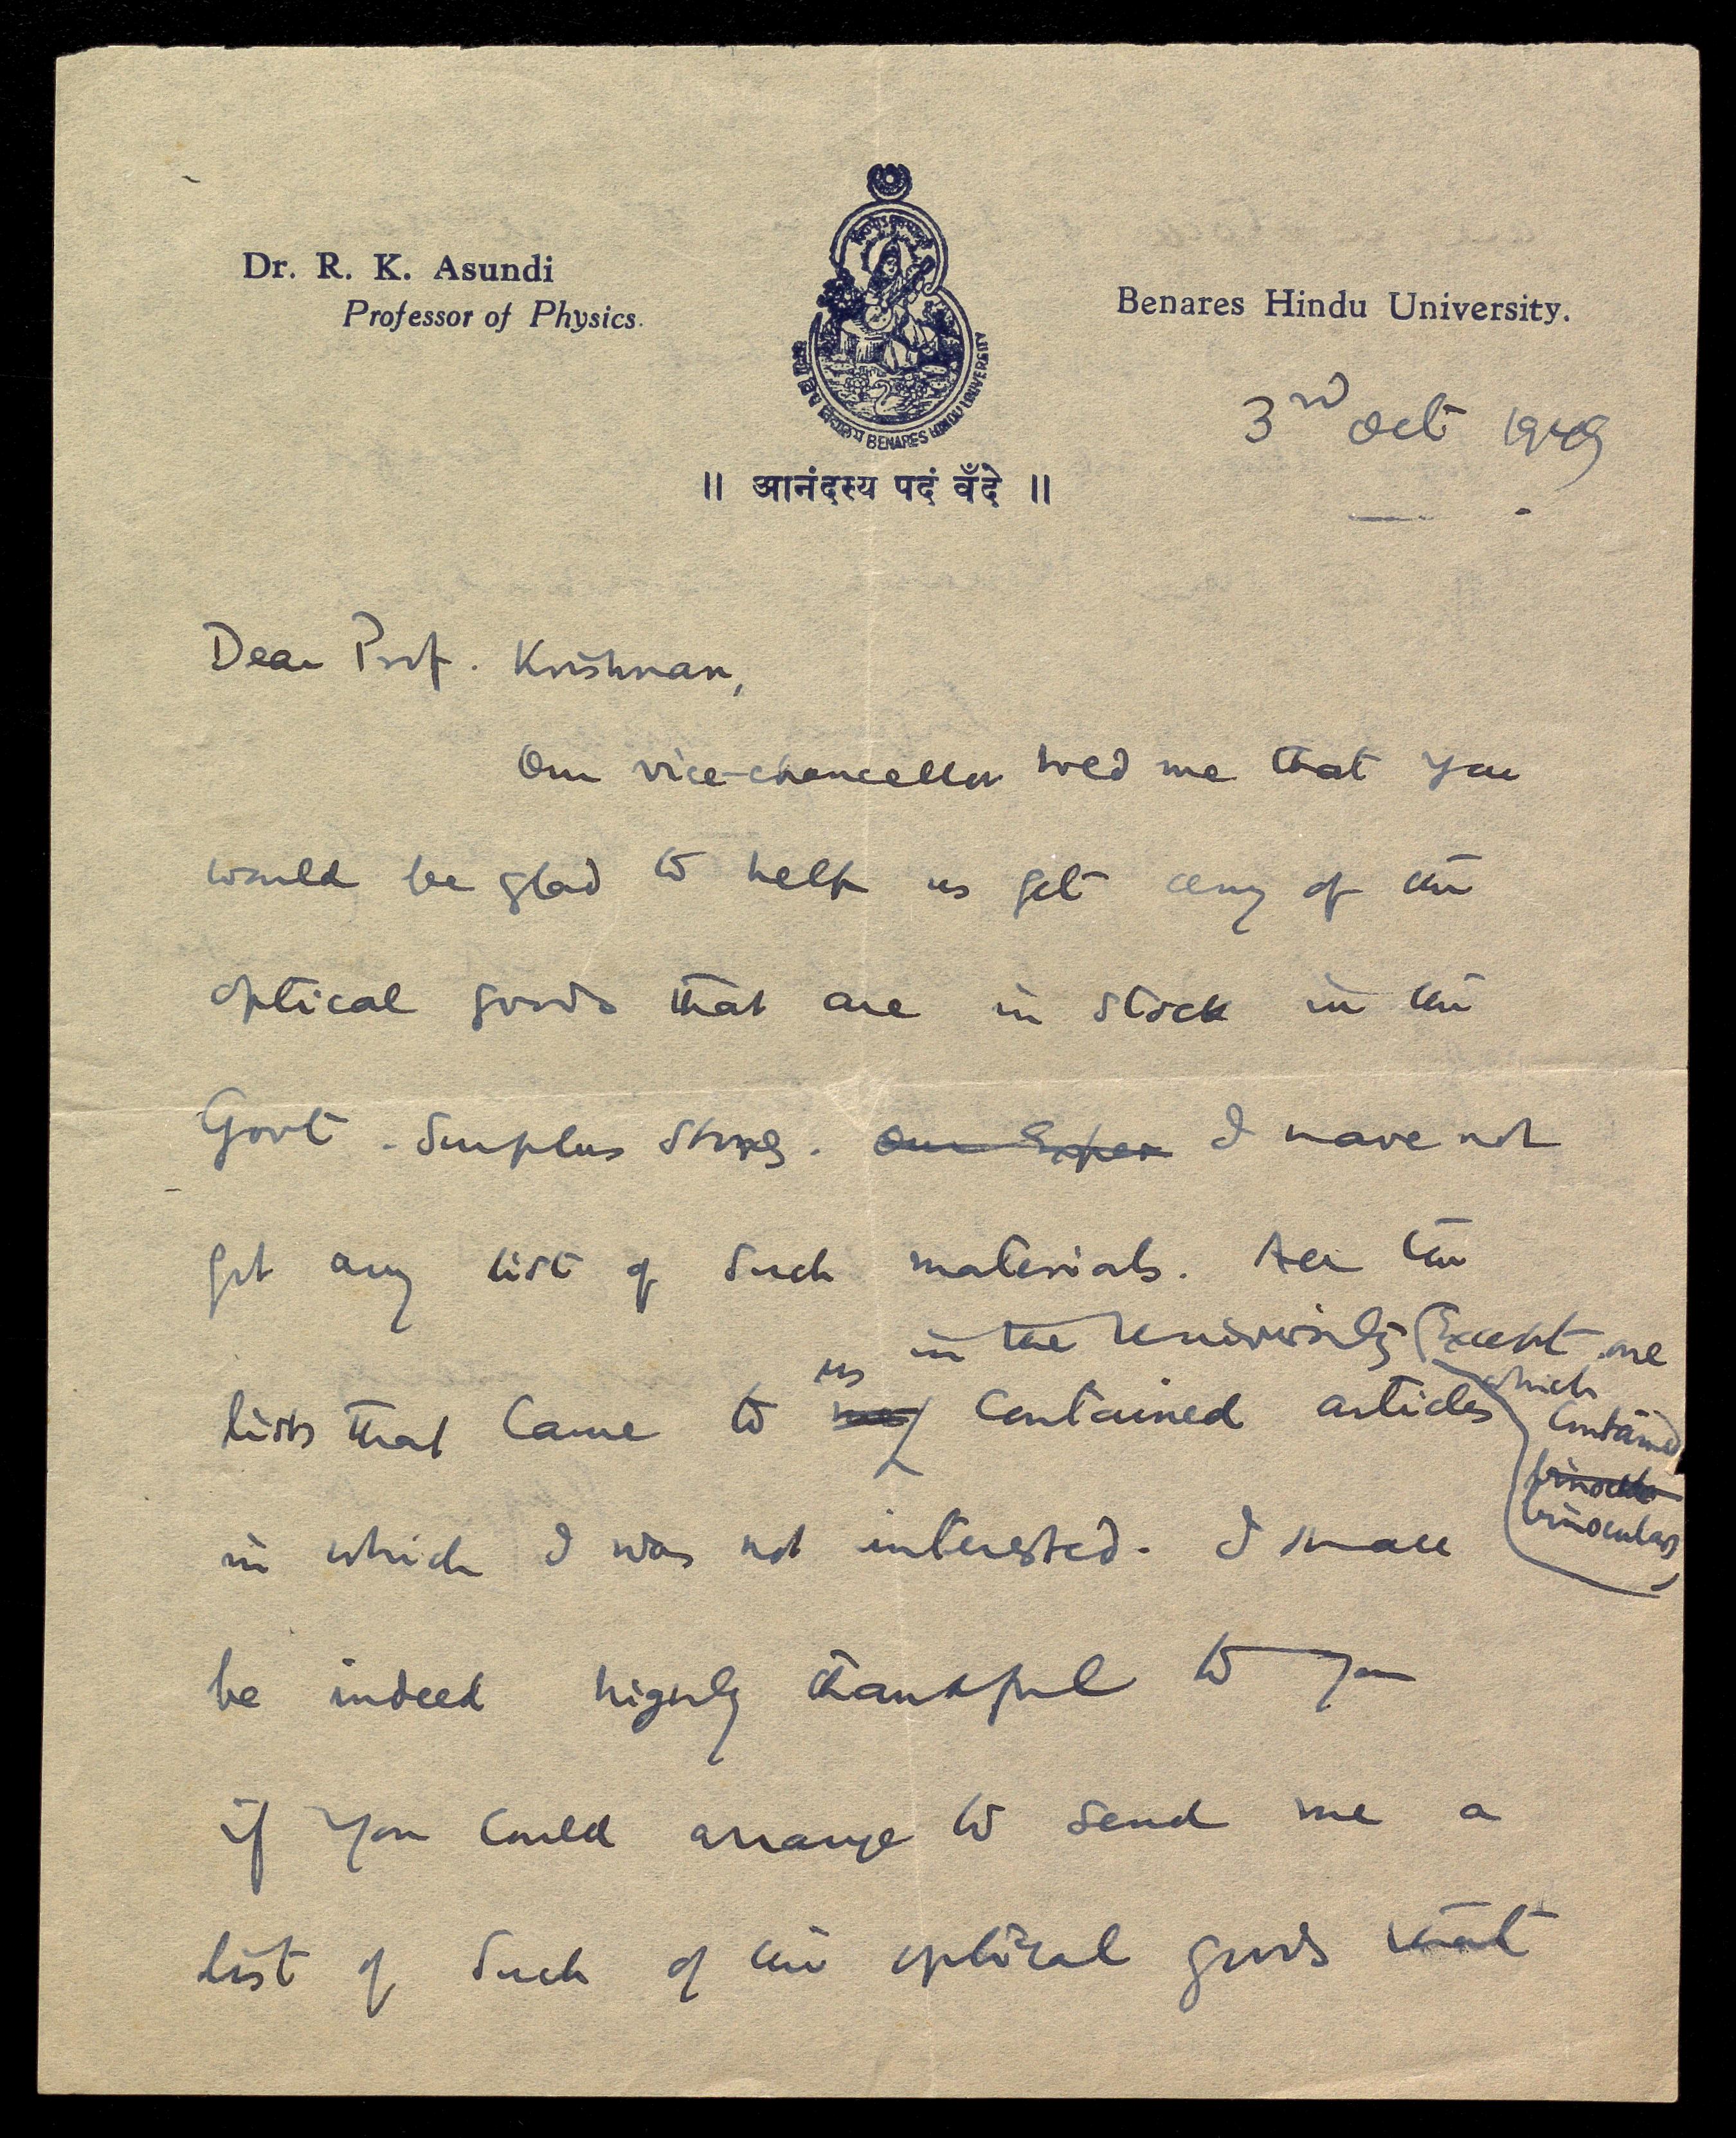 Dr. R. K. Asundi
Professor of Physics.
BENARES HINDU UNIVERSITY
॥ आनंदस्य पदं वँदे ॥
Benares Hindu University.
3rd Oct 1949
Dear Prof. Krishnan,
Our vice-chancellor told me that you
would be glad to help us get any of the
optical goods that are in stock in the
Govt. Surplus Stores. Our Exper I have not
got any list of such materials. All the
lists that came to us in the University (Except one which contained binoculars) contained articles
in which I was not interested. I shall
be indeed highly thankful to you
if you could arrange to send me a
list of such of the optical goods that